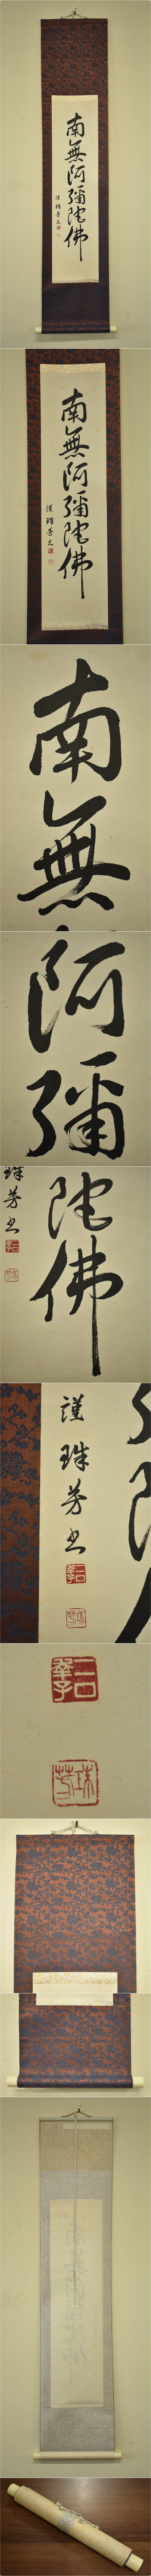 南無阿彌陀佛
謹珠芳書
南無阿彌陀佛
謹珠芳書
南無
阿彌
陀佛
珠芳書
謹珠芳書
珠芳